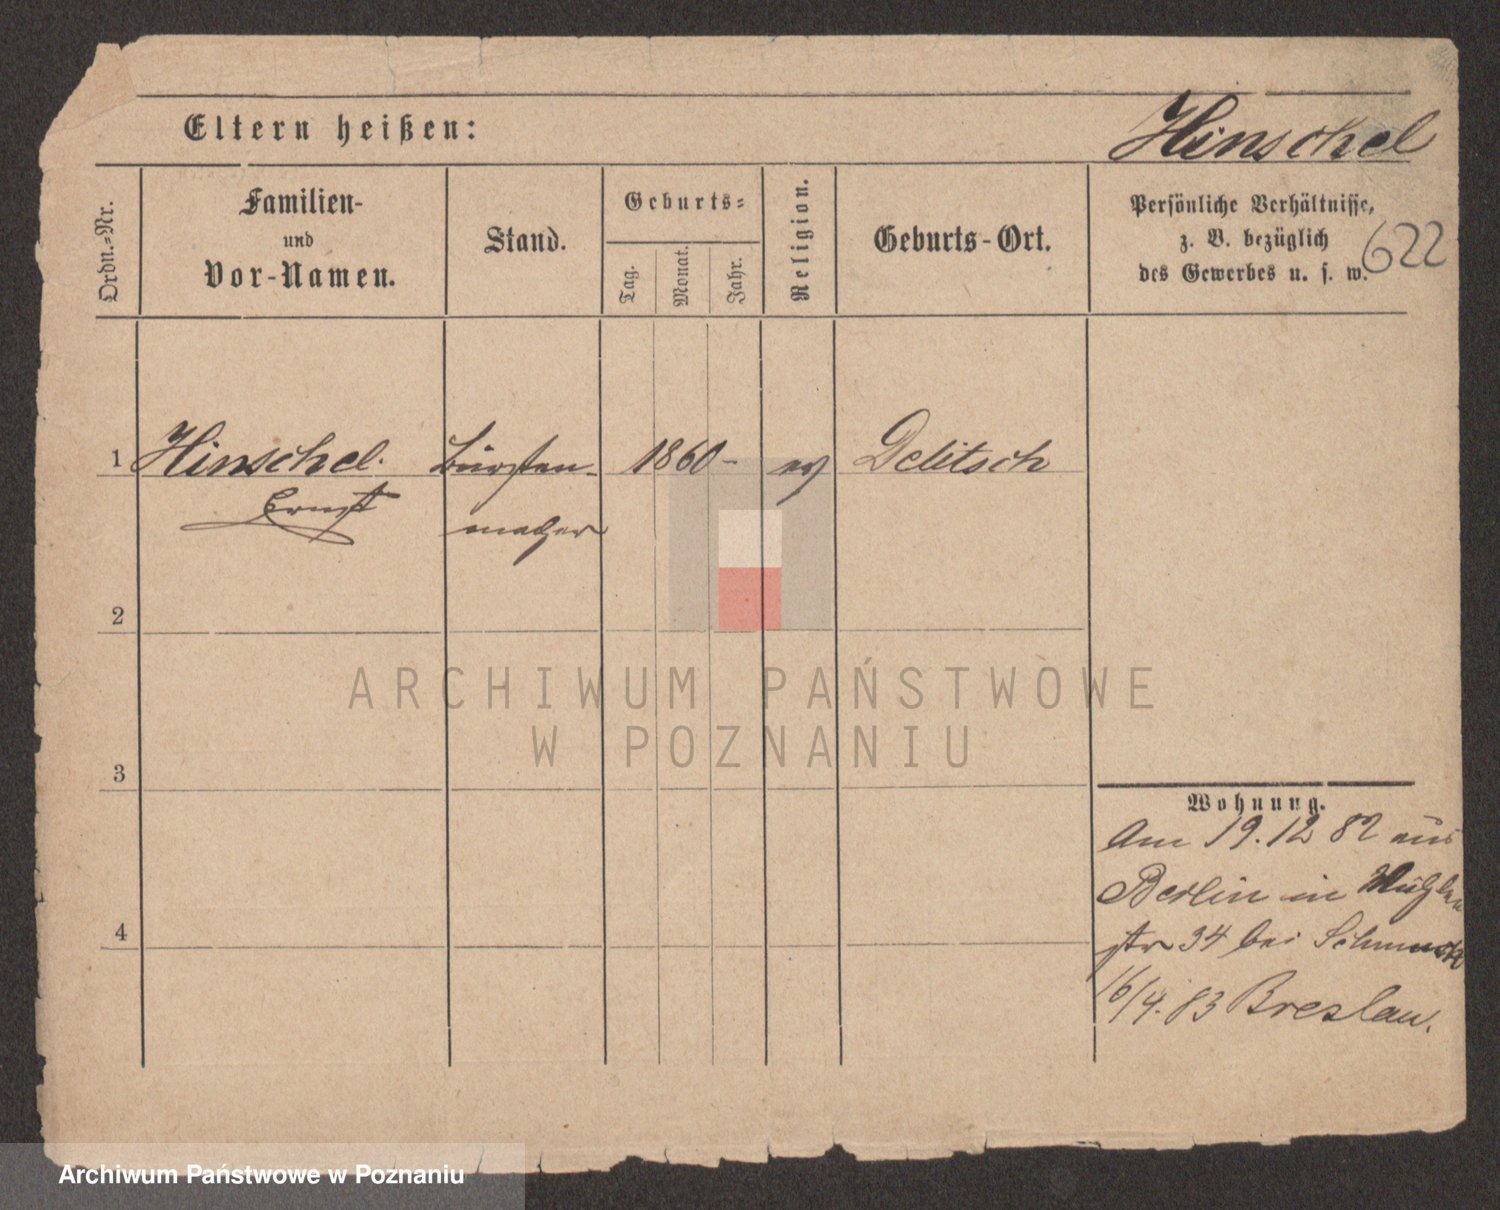 Eltern heißen:
Hinschel
Ordn.-Nr.
Familien-
und
Vor-Namen.
Stand.
Geburts-
Tag.
Monat.
Jahr.
Religion.
Geburts-Ort.
Persönliche Verhältnisse,
z. B. bezüglich
des Gewerbes u. s. w.
622
1 Hinschel. Bürsten- 1860- ev Delitsch
Ernst macher
2
3
4
Wohnung.
Am 19.12 82 aus
Berlin in
str 34 bei
16/4. 83 Breslau.
ARCHIWUM PAŃSTWOWE
W POZNANIU
Archiwum Państwowe w Poznaniu